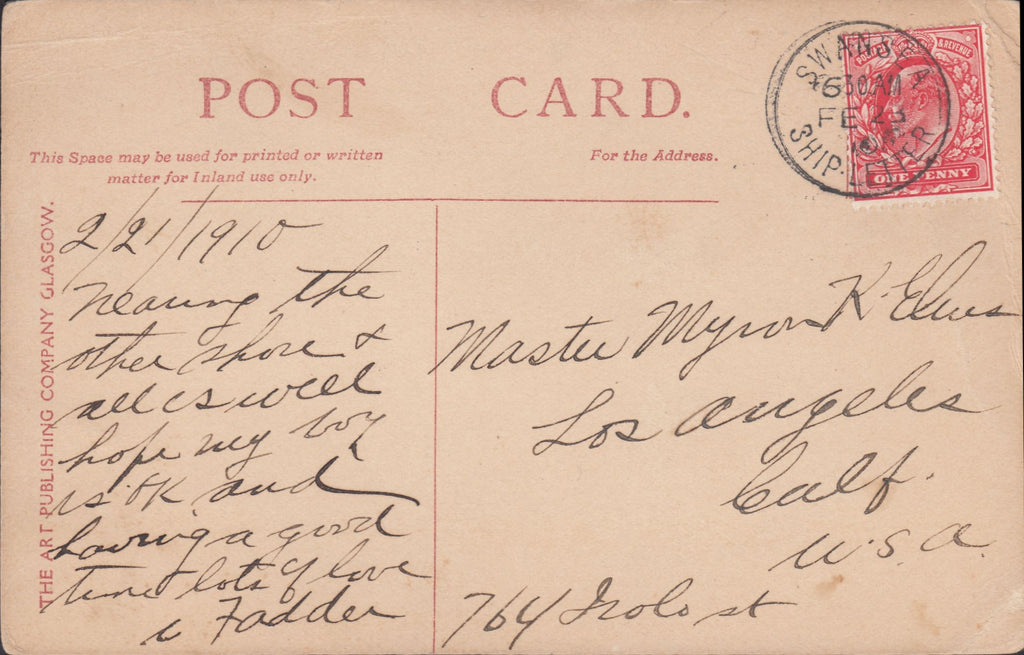 POST CARD.
This Space may be used for printed or written
matter for Inland use only.
For the Address.
THE ART PUBLISHING COMPANY GLASGOW.
2/21/1910
Nearing the
other shore &
all is well
hope my boy
is OK and
having a good
time lots of love
Fadder
Master Myron K. Elvis
Los Angeles
Calf.
U.S.A.
764 Irolo st
SWANSEA
6 30 AM
FE 23
10
SHIP LETTER
POSTAGE & REVENUE
ONE PENNY